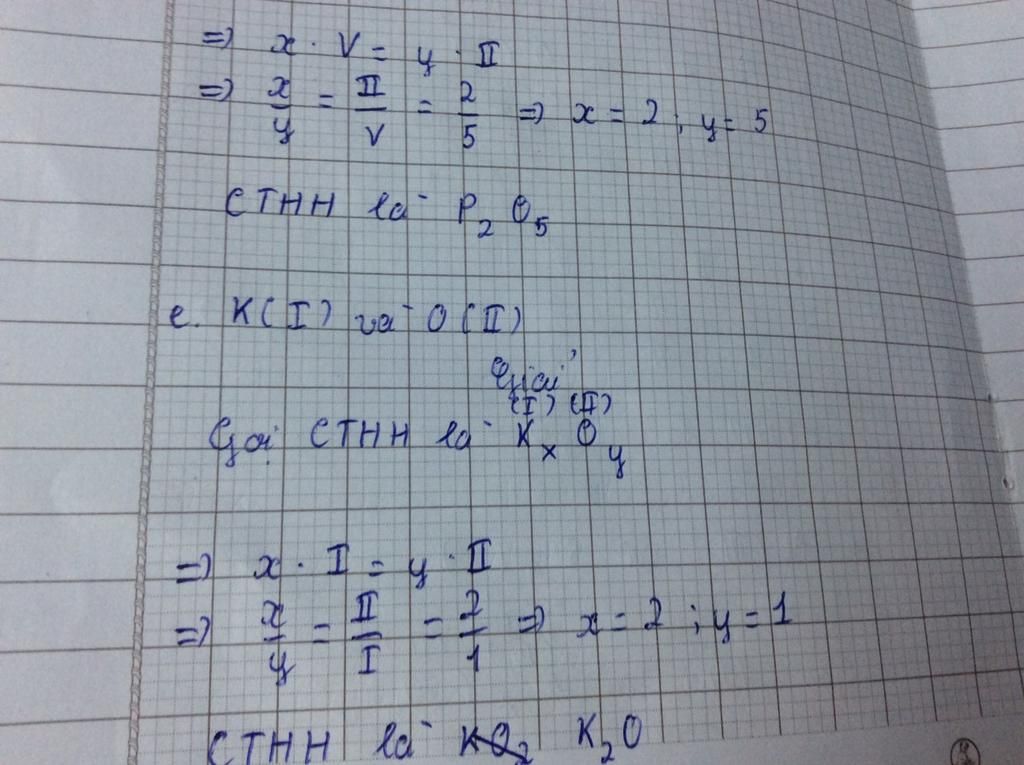 => x . V = y . II
=> x/y = II/V = 2/5 => x = 2 ; y = 5
CTHH là P2O5
e. K(I) và O(II)
Giải
(I) (II)
Gọi CTHH là KxOy
=> x . I = y . II
=> x/y = II/I = 2/1 => x = 2 ; y = 1
CTHH là KO2 K2O